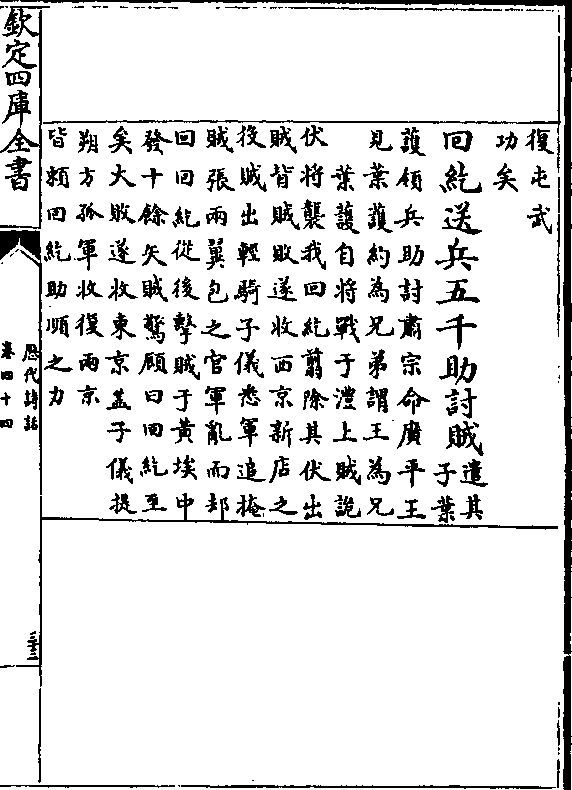 復屯武
功矣
回紇送兵五千助討賊遣其
子葉
護領兵助討肅宗命廣平王
見葉護約為兄弟謂王為兄
葉護自將戰于澧上賊詭
伏將襲我回紇翦除其伏出
賊皆賊敗遂收西京新店之
役賊出輕騎子儀悉軍追掩
賊張兩翼包之官軍亂而却
回回紇從後擊賊于黄埃中
發十餘矢賊驚顧曰回紇至
矣大敗遂收東京葢子儀提
朔方孤軍收復兩京
皆賴回紇助順之力
欽定四庫全書
歴代詩話
卷四十四
三十三